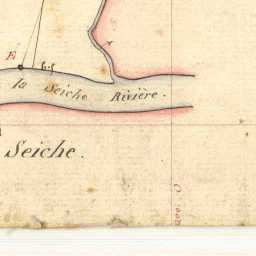 E
la Seiche Rivière.
Seiche.